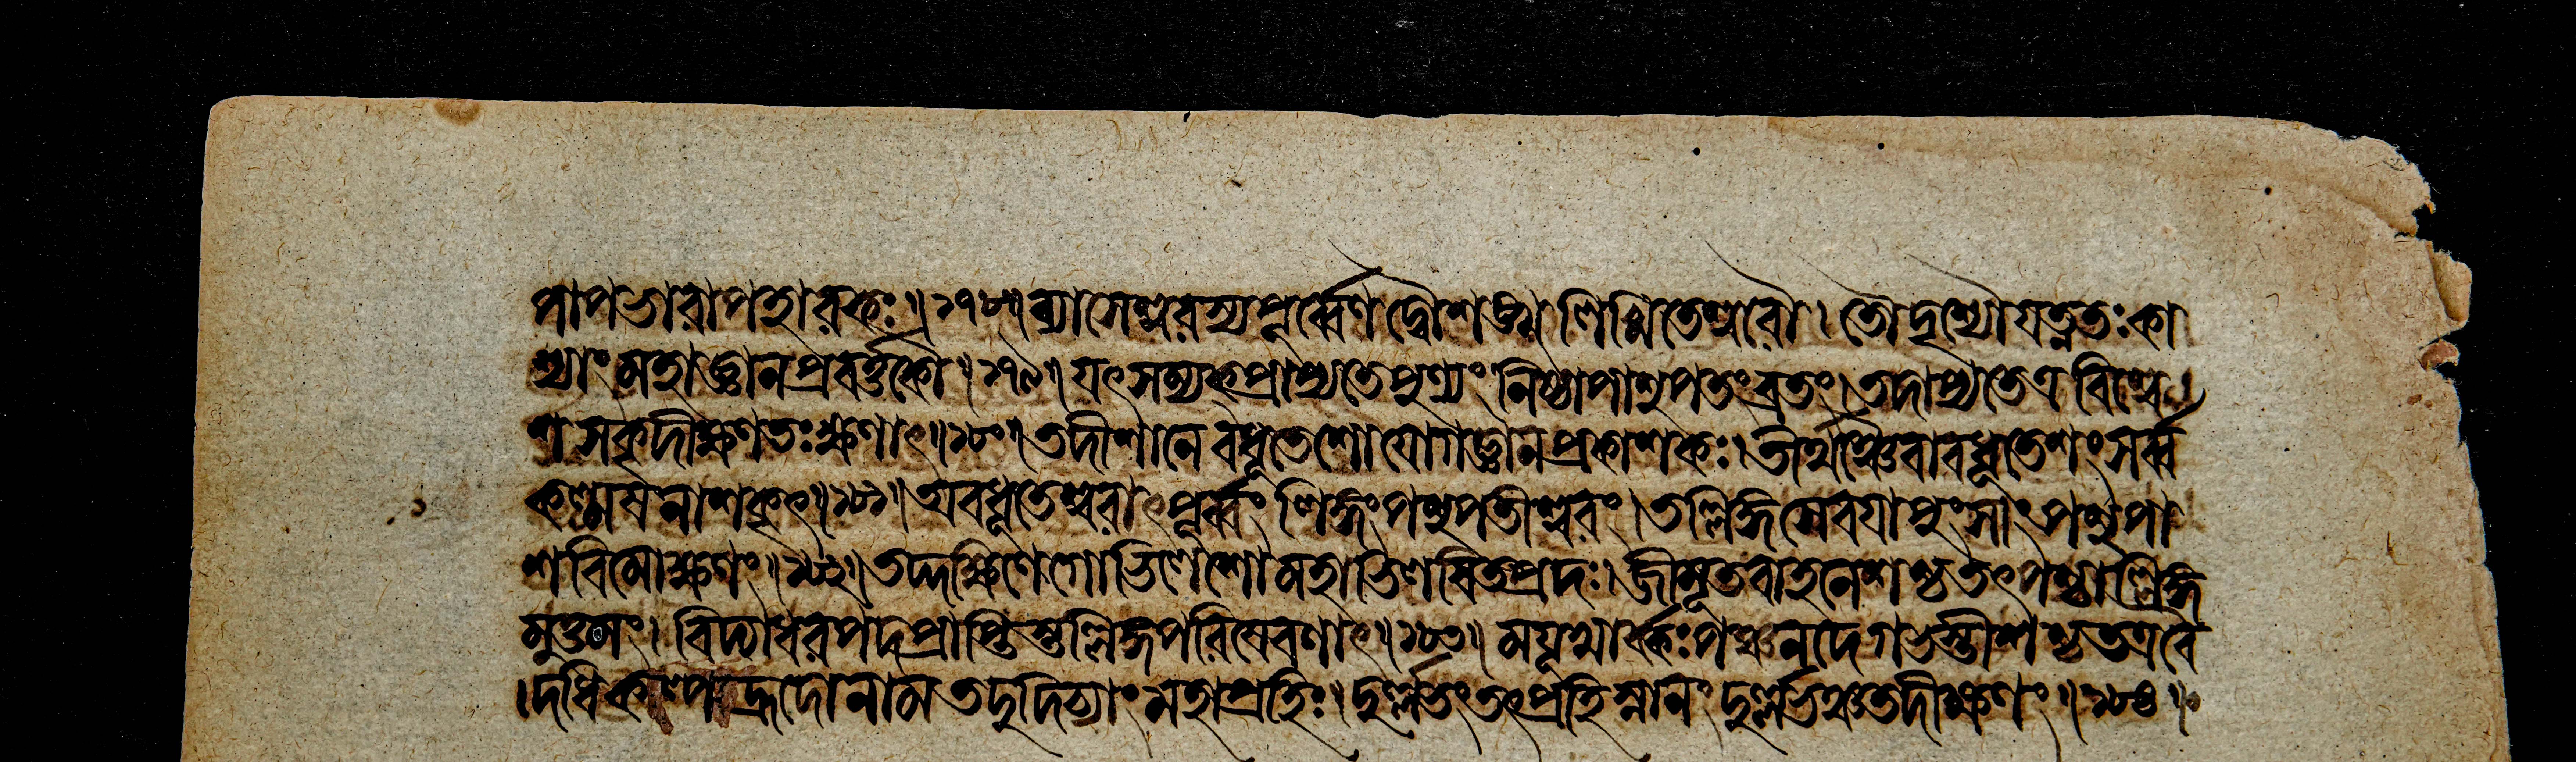 পাপভারাপহারকঃ॥১৭৮॥ব্যাসেশ্বরস্যপূর্ব্বেণদ্বৌশঙ্খলিখিতেশ্বরৌ।তৌদৃশ্যৌযত্নতঃকা
শ্যাংমহাজ্ঞানপ্রবর্ত্তকৌ॥১৭৯॥যৎসম্যক্প্রাপ্যতেপুণ্যংনিষ্ঠাপাশুপতংব্রতং।তদাপ্যতেঽত্রবিশ্বে
শসকৃদীক্ষণতঃক্ষণাৎ॥১৮০॥তদীশানেবধূতেশোযোগজ্ঞানপ্রকাশকঃ।তীর্থঞ্চৈবাবধূতেশংসর্ব্ব
কল্মষনাশকৃৎ॥১৮১॥অবধূতেশ্বরাৎপূর্ব্বংলিঙ্গংপশুপতীশ্বরং।তল্লিঙ্গসেবয়াপুংসাংপশুপা
শবিমোক্ষণং॥১৮২॥তদ্দক্ষিণেগোভিলেশোমহাভিলষিতপ্রদঃ।জীমূতবাহনেশশ্চতৎপশ্চাল্লিঙ্গ
মুত্তমং।বিদ্যাধরপদপ্রাপ্তিস্তল্লিঙ্গপরিষেবণাৎ॥১৮৩॥ময়ূখার্কঃপঞ্চনদেগভস্তীশশ্চতত্রবৈ
।দধিকল্পহ্রদোনামতদুদিচ্যাংমহাপ্রহিঃ।দুর্ল্লভংতৎপ্রহিস্নানংদুর্ল্লভঞ্চতদীক্ষণং॥১৮৪॥